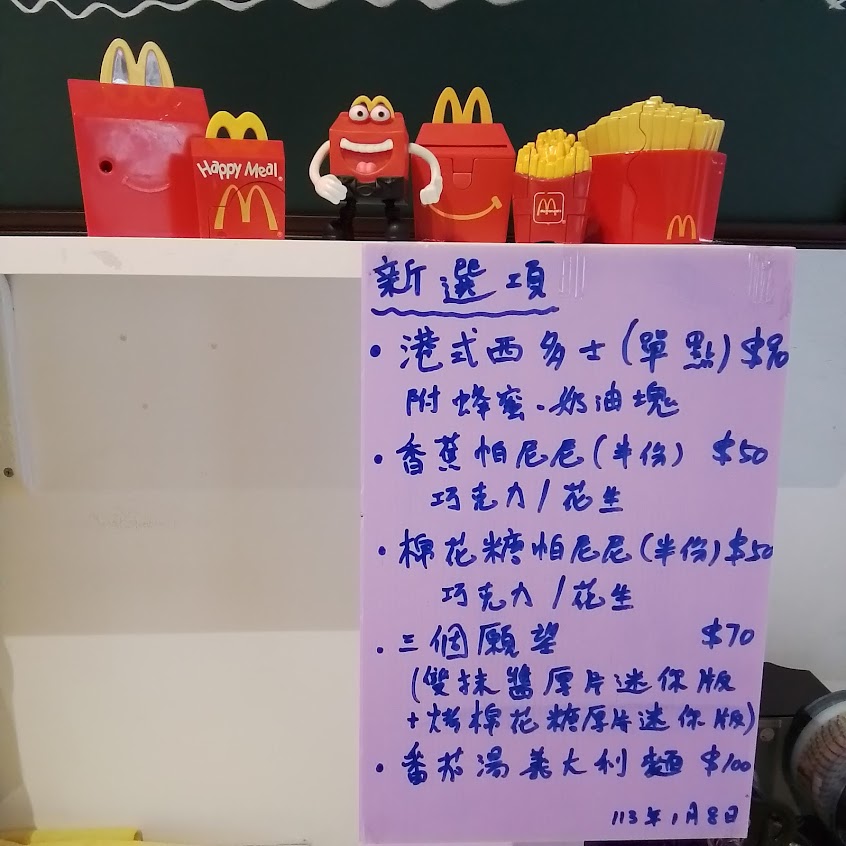 Happy Meal
新選項
• 港式西多士(單點) $90
附蜂蜜、奶油塊
• 香蕉帕尼尼(半份) $50
巧克力/花生
• 棉花糖帕尼尼(半份) $50
巧克力/花生
• 三個願望 $70
(雙抹醬厚片迷你版
+烤棉花糖厚片迷你版)
• 番茄湯義大利麵 $100
113年1月8日